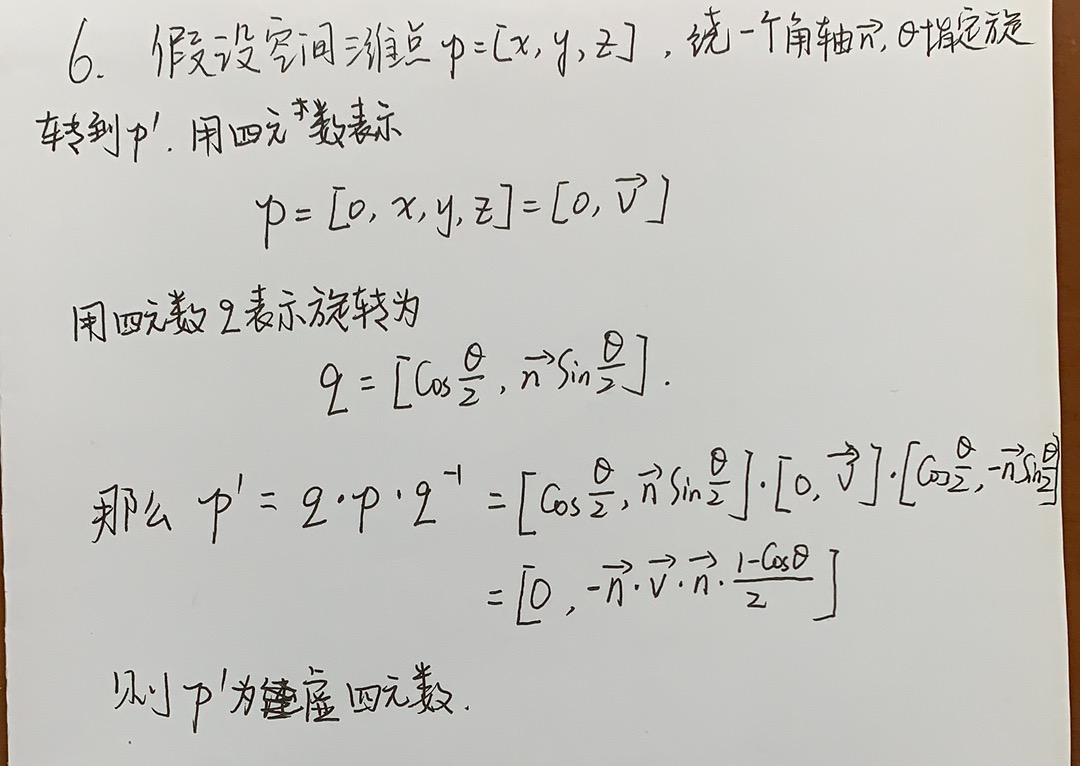 6. 假设空间三维点 p=[x, y, z], 绕一个角轴n⃗, θ指定旋
转到p'. 用四元数表示
p = [0, x, y, z] = [0, v⃗]
用四元数q表示旋转为
q = [Cos θ/2, n⃗ Sin θ/2].
那么 p' = q·p·q⁻¹ = [Cos θ/2, n⃗ Sin θ/2]·[0, v⃗]·[Cos θ/2, -n⃗ Sin θ/2]
= [0, -n⃗·v⃗·n⃗· (1-Cosθ)/2]
则 p'为虚四元数.